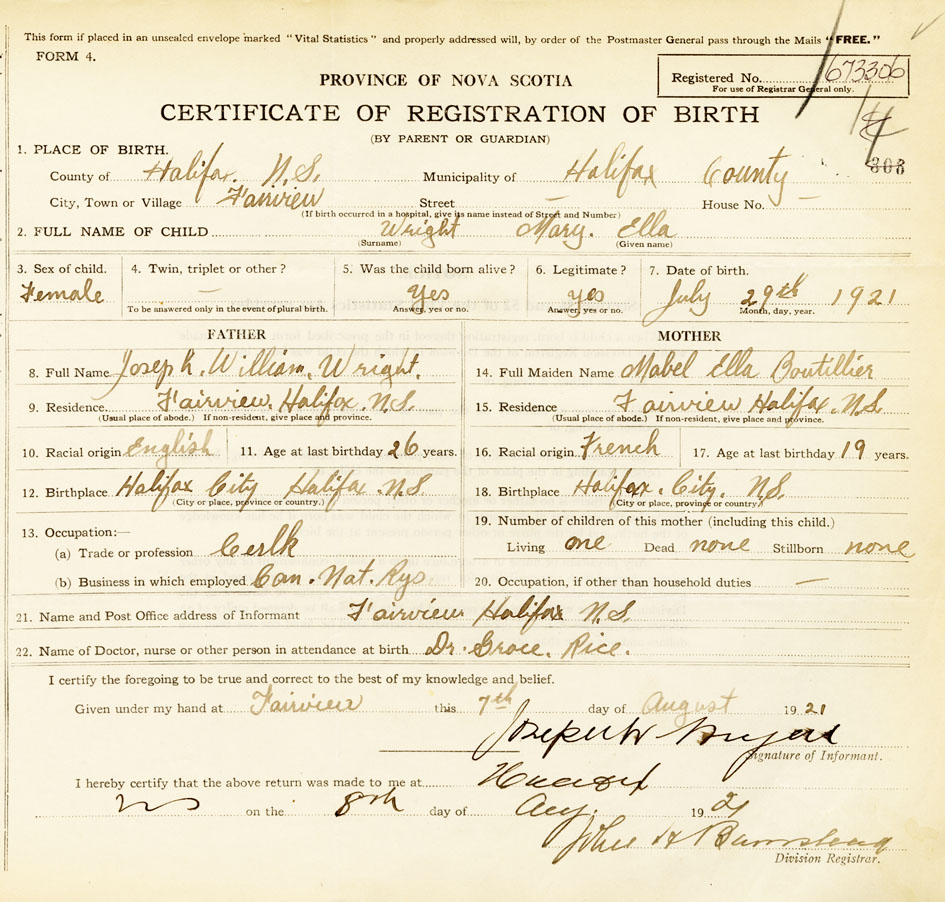 This form if placed in an unsealed envelope marked "Vital Statistics" and properly addressed will, by order of the Postmaster General pass through the Mails "FREE."
FORM 4.
PROVINCE OF NOVA SCOTIA
Registered No. 673306
For use of Registrar General only.
CERTIFICATE OF REGISTRATION OF BIRTH
(BY PARENT OR GUARDIAN)
308
1. PLACE OF BIRTH.
County of Halifax. N.S. Municipality of Halifax County
City, Town or Village Fairview Street — House No. —
(If birth occurred in a hospital, give its name instead of Street and Number)
2. FULL NAME OF CHILD Wright Mary. Ella
(Surname) (Given name)
3. Sex of child. 4. Twin, triplet or other? 5. Was the child born alive? 6. Legitimate? 7. Date of birth.
Female — Yes yes July 29th 1921
To be answered only in the event of plural birth. Answer, yes or no. Answer, yes or no. Month, day, year.
FATHER MOTHER
8. Full Name Joseph. William. Wright. 14. Full Maiden Name Mabel Ella Boutillier
9. Residence. Fairview. Halifax. N.S. 15. Residence Fairview Halifax. N.S.
(Usual place of abode.) If non-resident, give place and province. (Usual place of abode.) If non-resident, give place and province.
10. Racial origin English 11. Age at last birthday 26 years. 16. Racial origin French 17. Age at last birthday 19 years.
12. Birthplace Halifax City Halifax. N.S. 18. Birthplace Halifax. City. N.S.
(City or place, province or country.) (City or place, province or country.)
13. Occupation:— 19. Number of children of this mother (including this child.)
(a) Trade or profession Cerlk Living one Dead none Stillborn none
(b) Business in which employed Can. Nat. Rys. 20. Occupation, if other than household duties —
21. Name and Post Office address of Informant Fairview Halifax N.S.
22. Name of Doctor, nurse or other person in attendance at birth Dr. Grace. Rice.
I certify the foregoing to be true and correct to the best of my knowledge and belief.
Given under my hand at Fairview this 7th day of August 19 21
Joseph W
Signature of Informant.
I hereby certify that the above return was made to me at Halifax
NS on the 8th day of Aug. 19 21
John H Barnstead
Division Registrar.